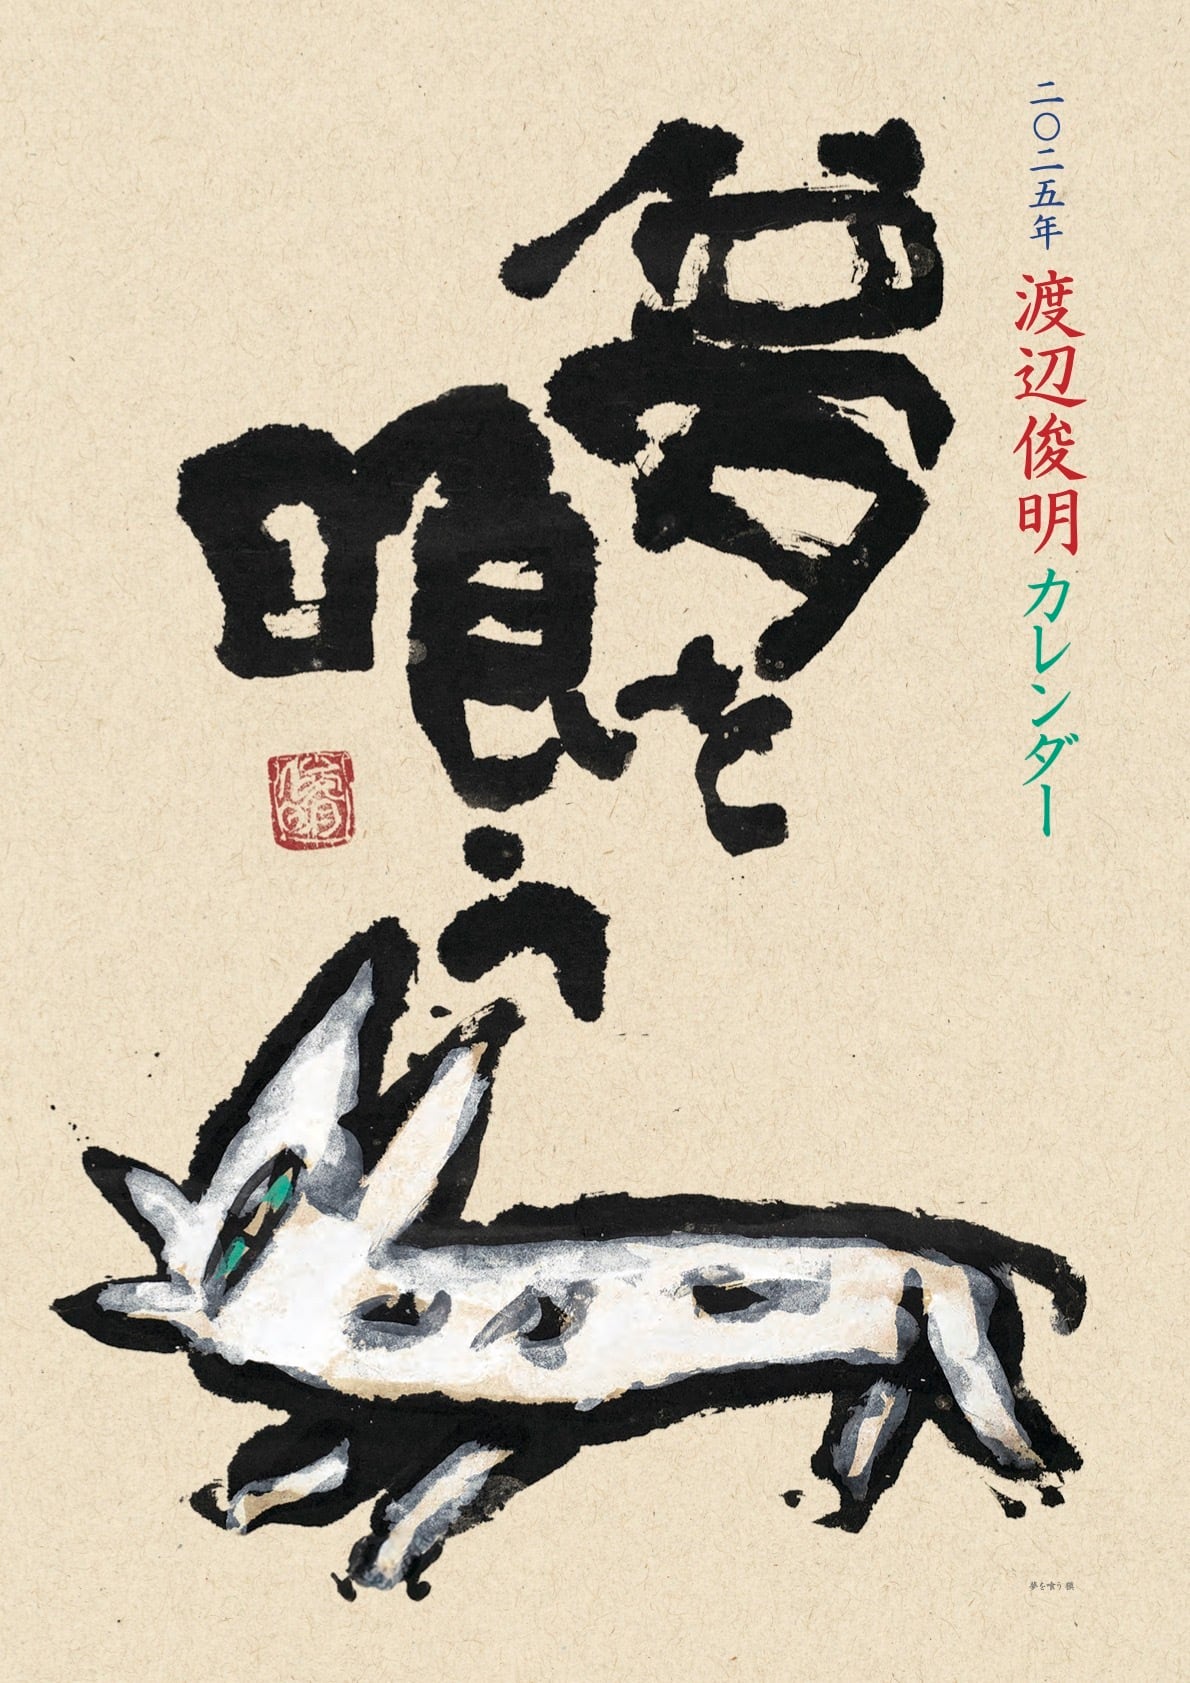 二〇二五年 渡辺俊明 カレンダー
夢を
喰う
俊明
夢を喰う 獏